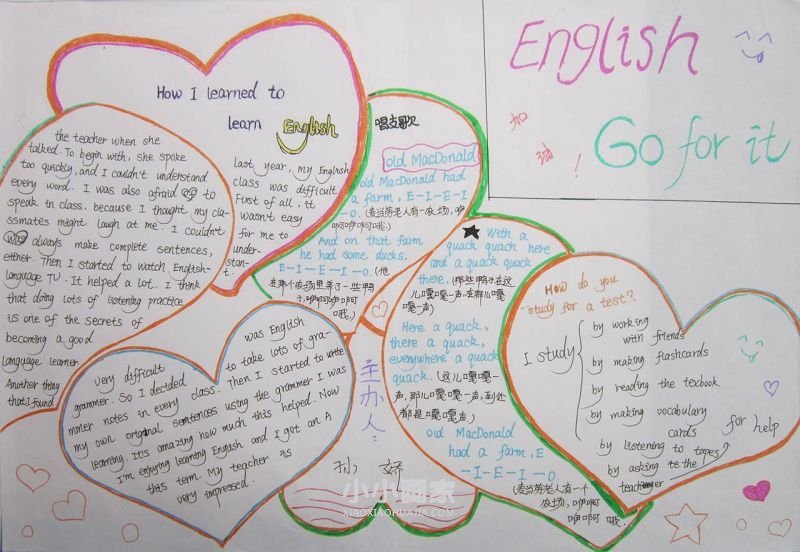 English
加
油!
Go for it
How I learned to
learn English
last year, my English
class was difficult
First of all, it
wasn't easy
for me to
under-
stan-
t.
the teacher when she
talked. To begin with, she spoke
too quickly, and I couldn't understand
every word. I was also afraid to
speak in class. because I thought my cla-
ssmates might laugh at me. I couldn't
always make complete sentences,
either. Then I started to watch English-
language TV. It helped a lot. I think
that doing lots of listening practice
is one of the secrets of
becoming a good
language learner.
Another thing
that I found
was English
very difficult to take lots of gra-
grammer. So I decided
mmer notes in every class. Then I started to write
my own original sentences using the grammer I was
learning. It's amazing how much this helped. Now
I'm enjoying learning English and I got an A
this term. My teacher is
very impressed.
唱支歌
old MacDonald
old MacDonald had
a farm, E-I-E-I
-O. (麦当劳老人有一农场,咿
呀咿呀哦.)
And on that farm
he had some ducks.
E-I-E-I-O. (他
在那个农场里养了一些鸭
子,咿呀咿呀
哦.)
With a
quack quack here
and a quack quack
there. (那些鸭子在这
儿嘎嘎一声,在那儿嘎
嘎一声)
Here a quack,
there a quack,
everywhere a quack
quack. (这儿嘎嘎一
声,那儿嘎嘎一声,到处
都是嘎嘎声.)
old MacDonald
had a farm, E
-I-E-I-O.
(麦当劳老人有一个
农场,咿呀
咿呀 哦.)
主办人:
孙 娇
How do you
study for a test?
I study
by working
with friends
by making flashcards
by reading the texbook
by making vocabulary
cards
by listening to tapes
by asking te the for help
teacher
小小画家
XIAOXIAOHUAJIA.COM